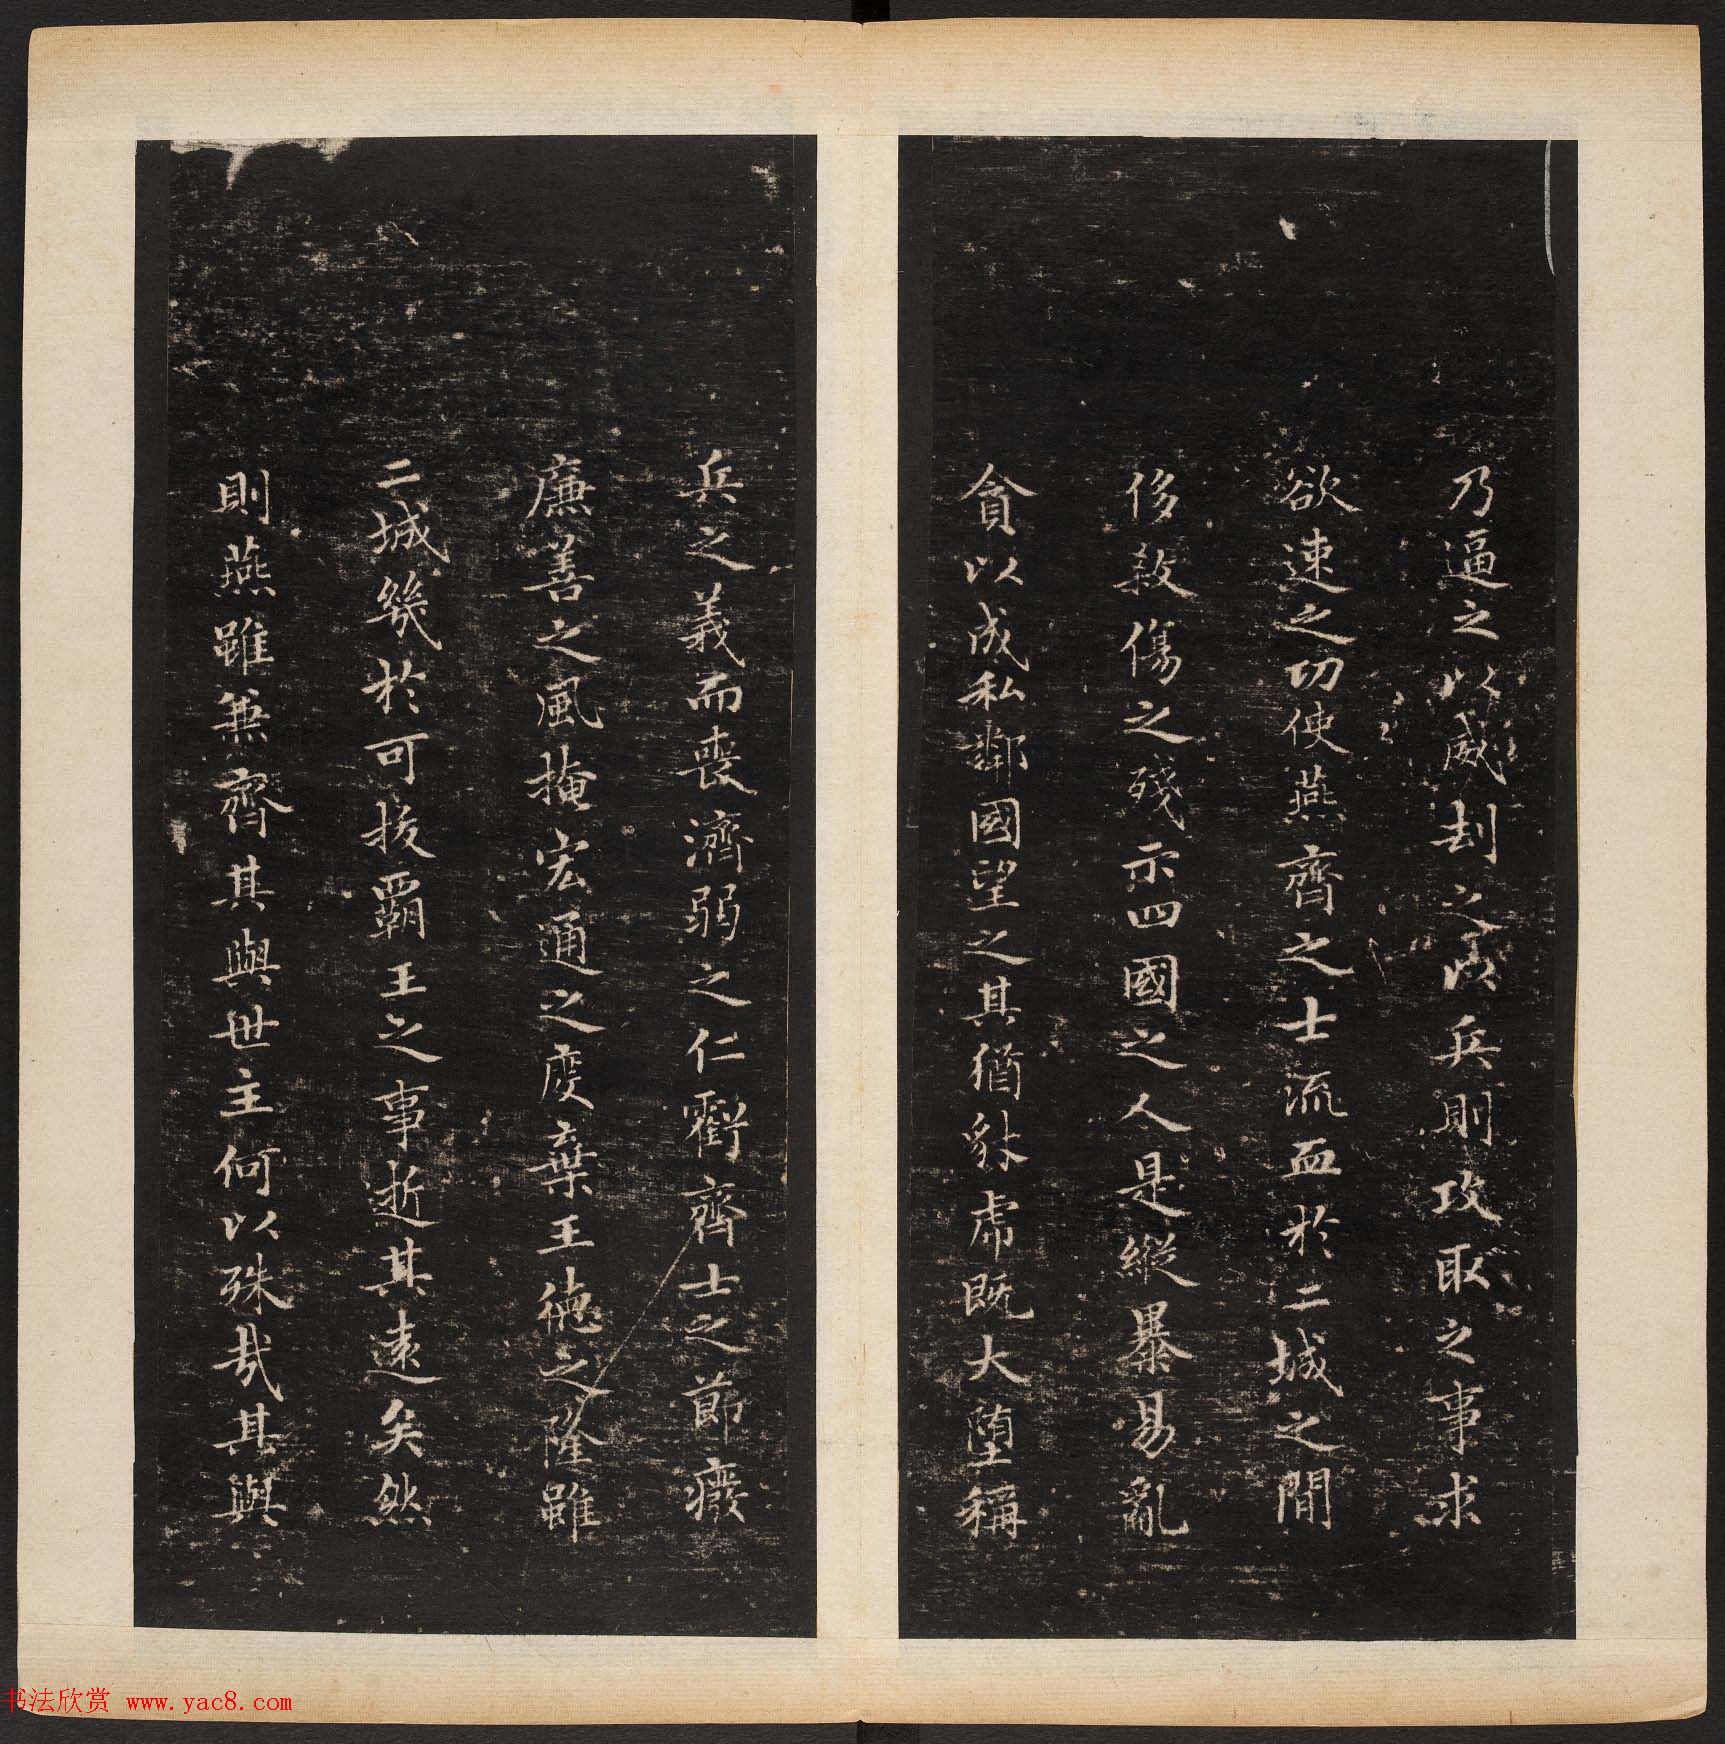 乃逼之以威刦之以兵則攻取之事求
欲速之功使燕齊之士流血於二城之間
侈殺傷之殘示四國之人是縱暴易亂
貪以成私鄰國望之其猶豺虎既大墮稱
兵之義而喪濟弱之仁虧齊士之節癈
廉善之風掩宏通之度棄王德之隆雖
二城幾於可拔覇王之事逝其遠矣然
則燕雖兼齊其與世主何以殊哉其與
书法欣赏 www.yac8.com